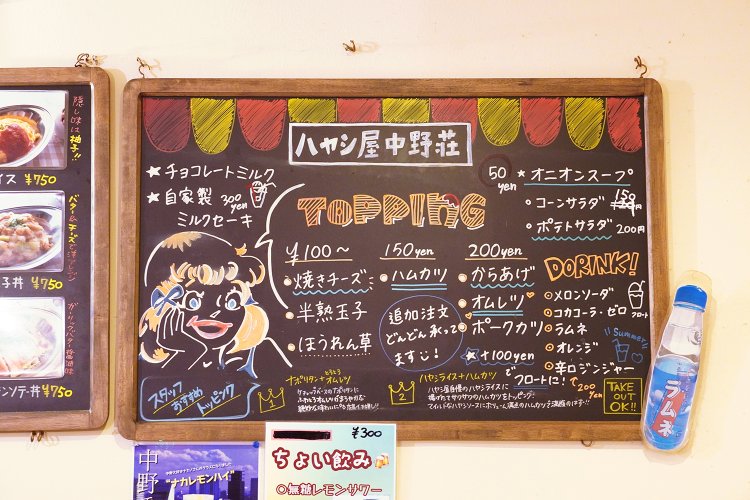 隠し味は柚子!!
イス ¥750
バター&チーズで
子丼 ¥750
ンソテー丼 ¥750
ハヤシ屋中野荘
★チョコレートミルク
★自家製
ミルクセーキ
300yen
TOPPING
¥100～
・焼きチーズ
・半熟玉子
・ほうれん草
150yen
・ハムカツ
200yen
・からあげ
・オムレツ
・ポークカツ
追加注文
どんどん承って
ますじ!
50yen
★オニオンスープ
・コーンサラダ
150
・ポテトサラダ 200円
DORINK!
○メロンソーダ
○コカコーラ・ゼロ
○ラムネ
○オレンジ
○辛口ジンジャー
フロート
Summer
★+100yen
でフロートに!
で200yen
TAKE
OUT
OK!!
スタッフ
おすすめ
トッピング
1
ナポリタン+オムレツ
2
ハヤシライス+ハムカツ
ハヤシ屋自慢のハヤシライスに
揚げたてサクサクのハムカツをトッピング!
ラムネ
中野
"ナカレモンハイ"
¥300
ちょい飲み
○無糖レモンサワー